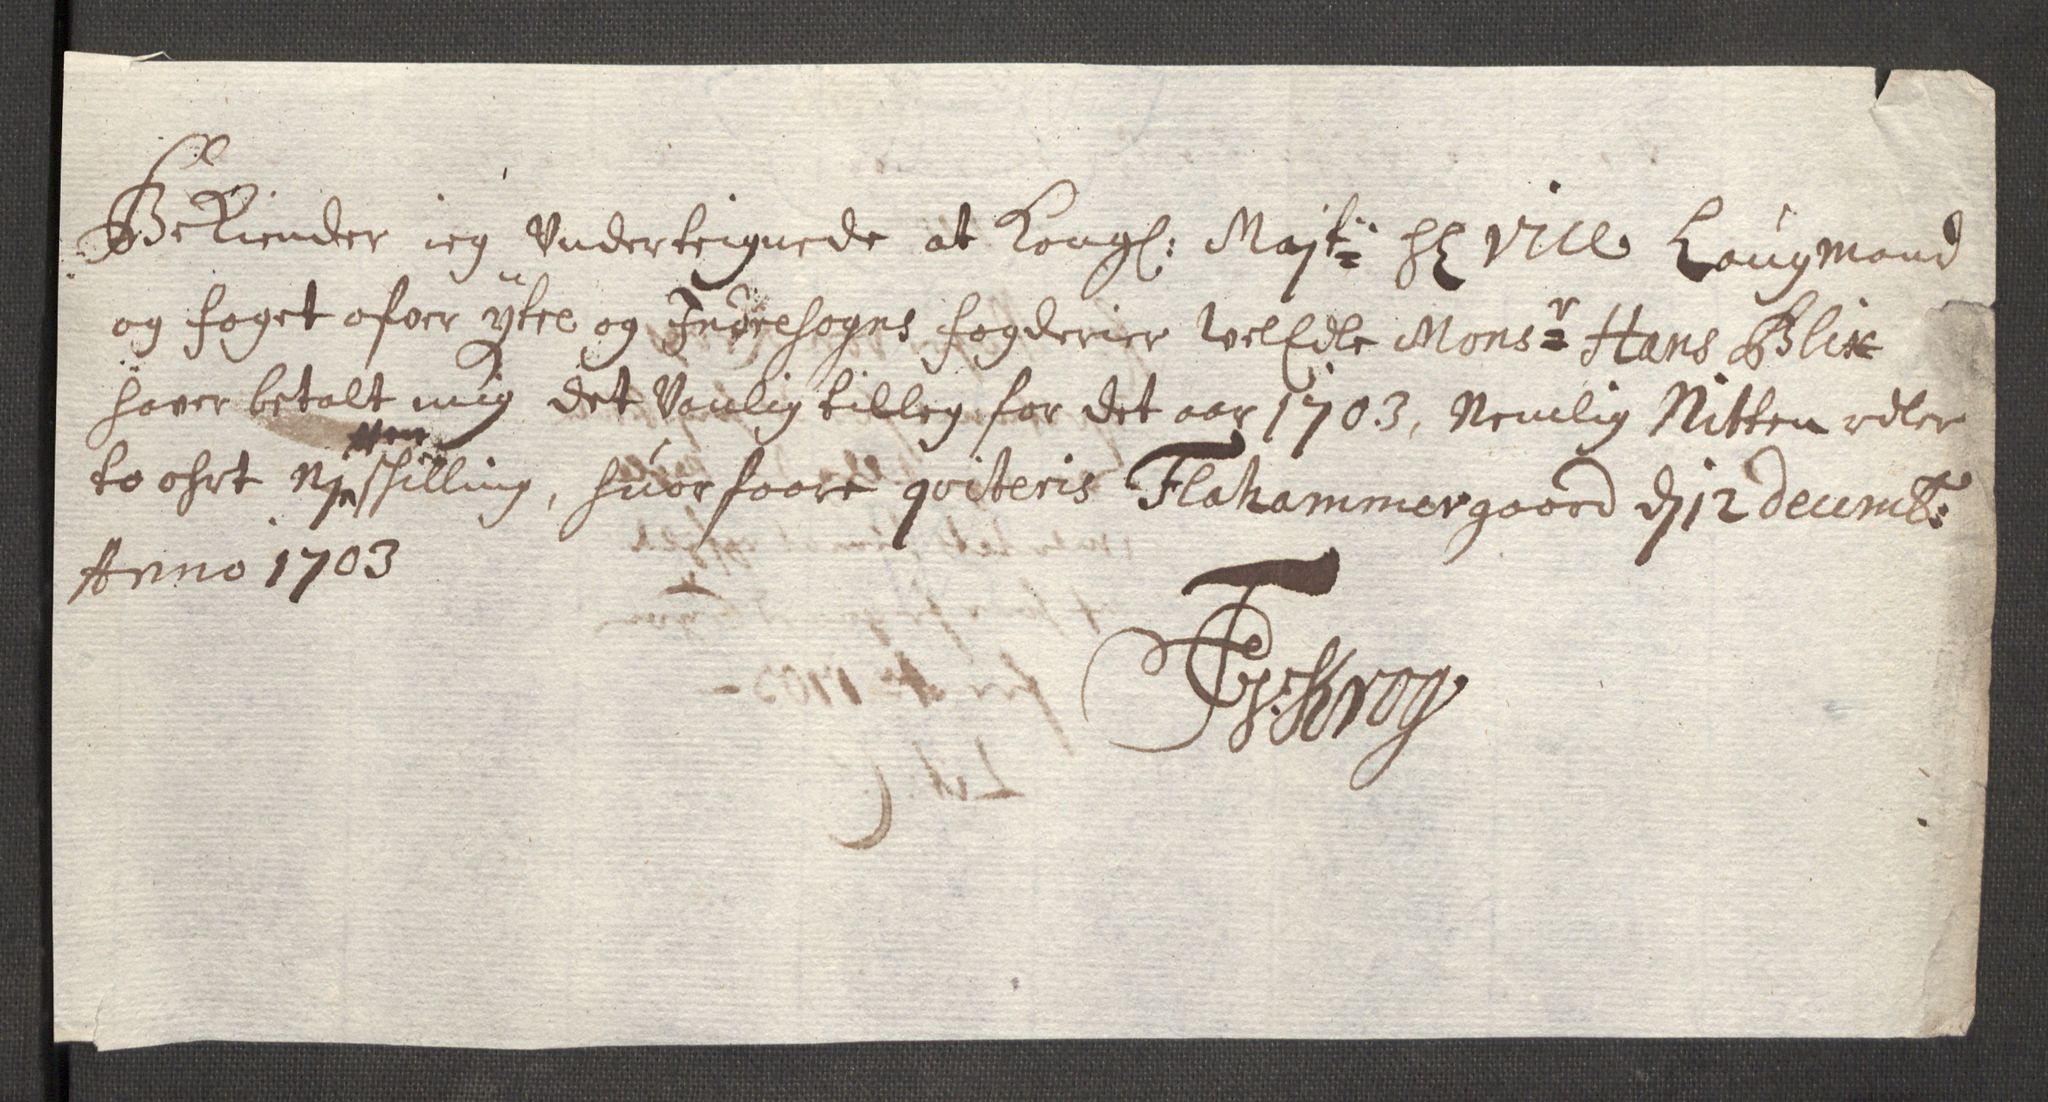 Bekiender ieg Underteignede at Kongl: Maÿt: Hr Vice Laugmand
og foget ofver ÿtre og Indresogns fogderier WelEdle Monsr Hans Blix
hafver betalt mig det Vanlig tilleg for det aar 1703, Nemlig Nitten rdler
to ohrt skilling, huor faare qviteris Flahammergaard d 12 decemb:
Anno 1703
Krog